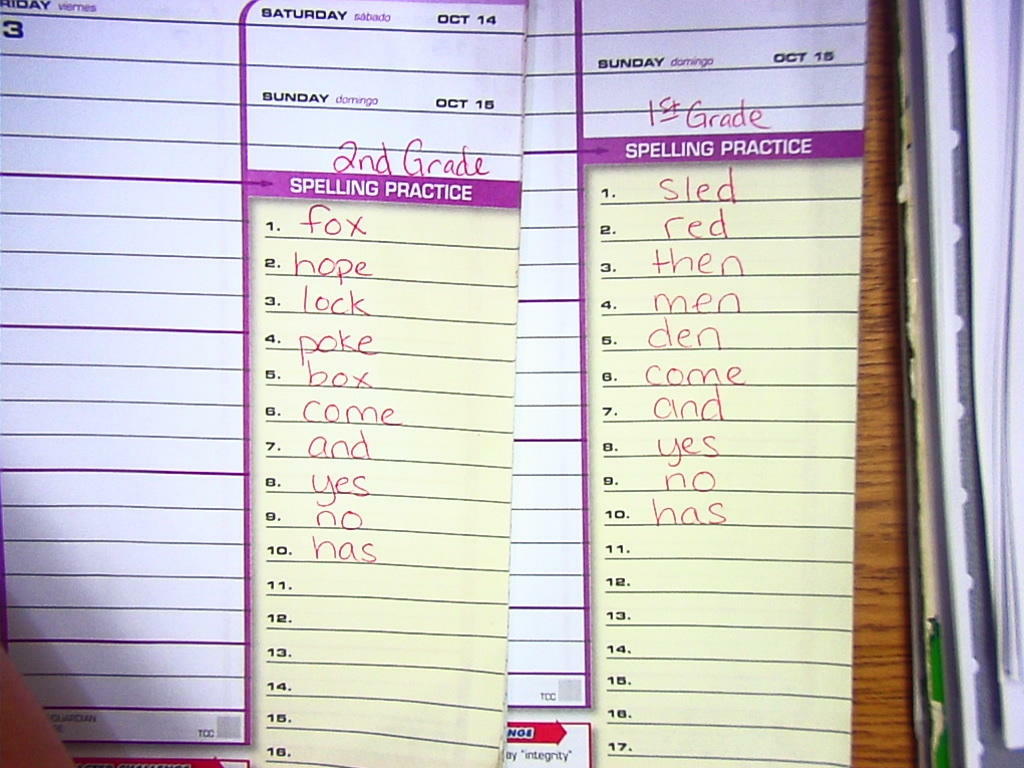 RIDAY viernes
3
SATURDAY sábado OCT 14
SUNDAY domingo OCT 15
2nd Grade
SPELLING PRACTICE
1. fox
2. hope
3. lock
4. poke
5. box
6. come
7. and
8. yes
9. no
10. has
11.
12.
13.
14.
15.
16.
TCC
SUNDAY domingo OCT 15
1st Grade
SPELLING PRACTICE
1. sled
2. red
3. then
4. men
5. den
6. come
7. and
8. yes
9. no
10. has
11.
12.
13.
14.
15.
16.
17.
TCC
NGE
ay "integrity"